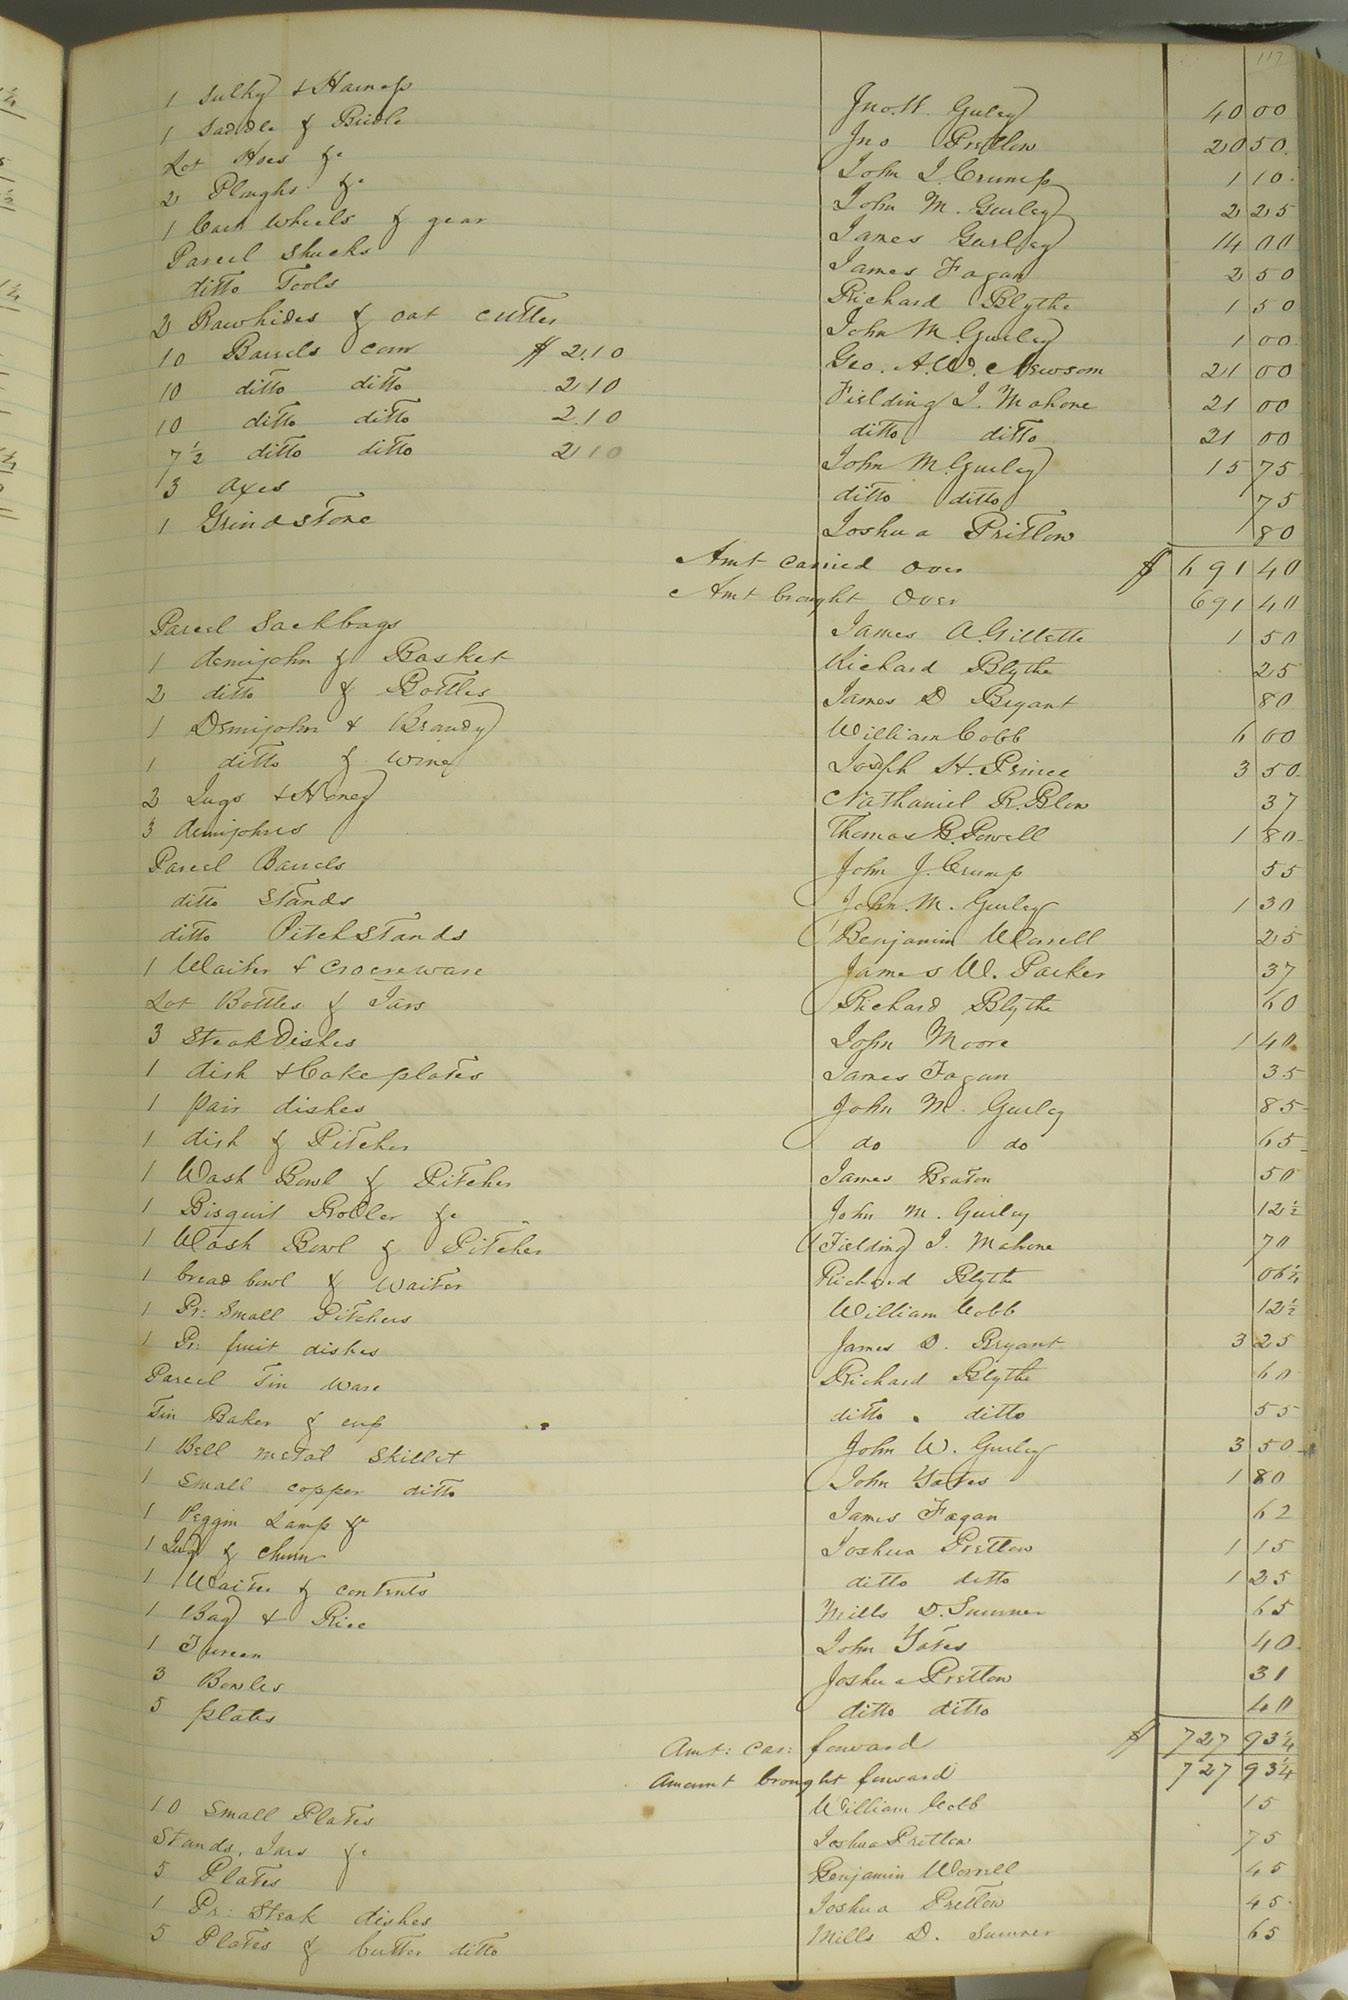 117
1 Sulky & Harness Jno. W. Gurley 40 00
1 Saddle & Bridle Jno Pretlow 20 50
Lot Hoes &c John J. Crump 1 10
2 Ploughs &c John M. Gurley 2 25
1 Cart Wheels & gear James Gurley 14 00
Parcel Shucks James Fagan 2 50
ditto Tools Richard Blythe 1 50
2 Rawhides & oat cutter John M. Gurley 1 00
10 Barrels corn $ 2.10 Geo. A. W. Newsom 21 00
10 ditto ditto 2 10 Fielding J. Mahone 21 00
10 ditto ditto 2.10 ditto ditto 21 00
7 1/2 ditto ditto 2 10 John M. Gurley 15 75
3 axes ditto ditto 75
1 Grindstone Joshua Pritlow 80
Amt carried over $ 691 40
Amt brought over 691 40
Parcel Sackbags James A. Gillette 1 50
1 demijohn & Basket Richard Blythe 25
2 ditto & Bottles James D Bryant 80
1 Demijohn & Brandy William Cobb 6 00
1 ditto & wine Joseph H. Prince 3 50
2 Jugs & Honey Nathaniel R. Blow 37
3 demijohns Thomas B. Powell 1 80
Parcel Barrels John J. Crump 55
ditto Stands John. M. Gurley 1 30
ditto Pitch Stands Benjamin Worrell 25
1 Waiter & Crocreware James W. Parker 37
Lot Bottles & Jars Richard Blythe 60
3 Steak Dishes John Moore 1 40
1 dish & Cake plates James Fagan 35
1 pair dishes John M. Gurley 85
1 dish & Pitcher do do 65
1 Wash Bowl & Pitcher James Beaton 50
1 Bisquit Roller &c John M. Gurley 12 1/2
1 Wash Bowl & Pitcher Fielding J. Mahone 70
1 bread bowl & waiter Richard Blythe 06 1/4
1 Pr: Small Pitchers William Cobb 12 1/2
1 Pr: fruit dishes James D. Bryant 3 25
Parcel Tin ware Richard Blythe 60
Tin Baker & cup ditto ditto 55
1 Bell metal Skillet John W. Gurley 3 50
1 small copper ditto John Yates 1 80
1 Peggin Lamp &c James Fagan 62
1 Jug & churn Joshua Pretlow 1 15
1 Waiter & contents ditto ditto 1 25
1 Bag & Rice Mills D. Sumner 65
1 Tureen John Yates 40
3 Bowles Joshua Pretlow 31
5 plates ditto ditto 40
Amt: car: forward $ 727 93 1/4
Amount brought forward 727 93 1/4
10 Small Plates William Cobb 15
Stands, Jars &c Joshua Pretlow 75
5 Plates Benjamin Worrell 45
1 Pr: Steak dishes Joshua Pretlow 45
5 Plates & butter ditto Mills D. Sumner 65